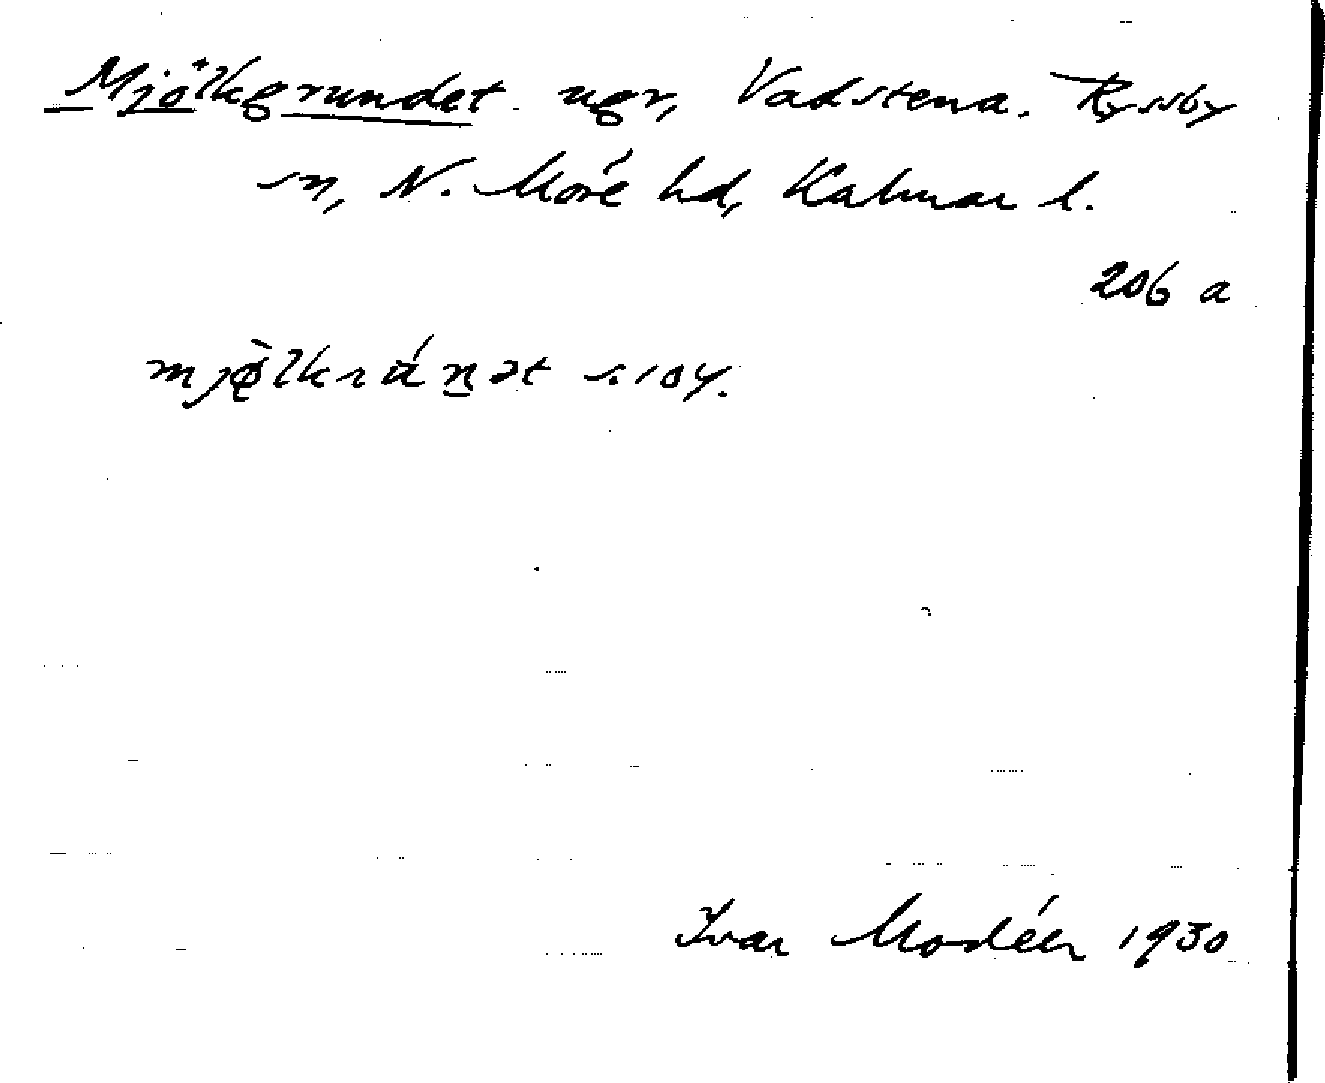 Mjölkgrundet ugr, Vadstena. Ryssby
sn, N. Möre hd, Kalmar l.
206 a
s. 104.
Ivar Modéer 1930